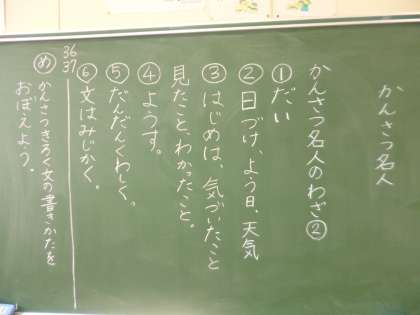 かんさつ名人
かんさつ名人のわざ②
①だい
②日づけ、よう日、天気
③はじめは、気づいたこと
見たこと、わかったこと。
④ようす。
⑤だんだんくわしく。
⑥文はみじかく。
36
37
め かんさつきろく文の書きかたを
おぼえよう。